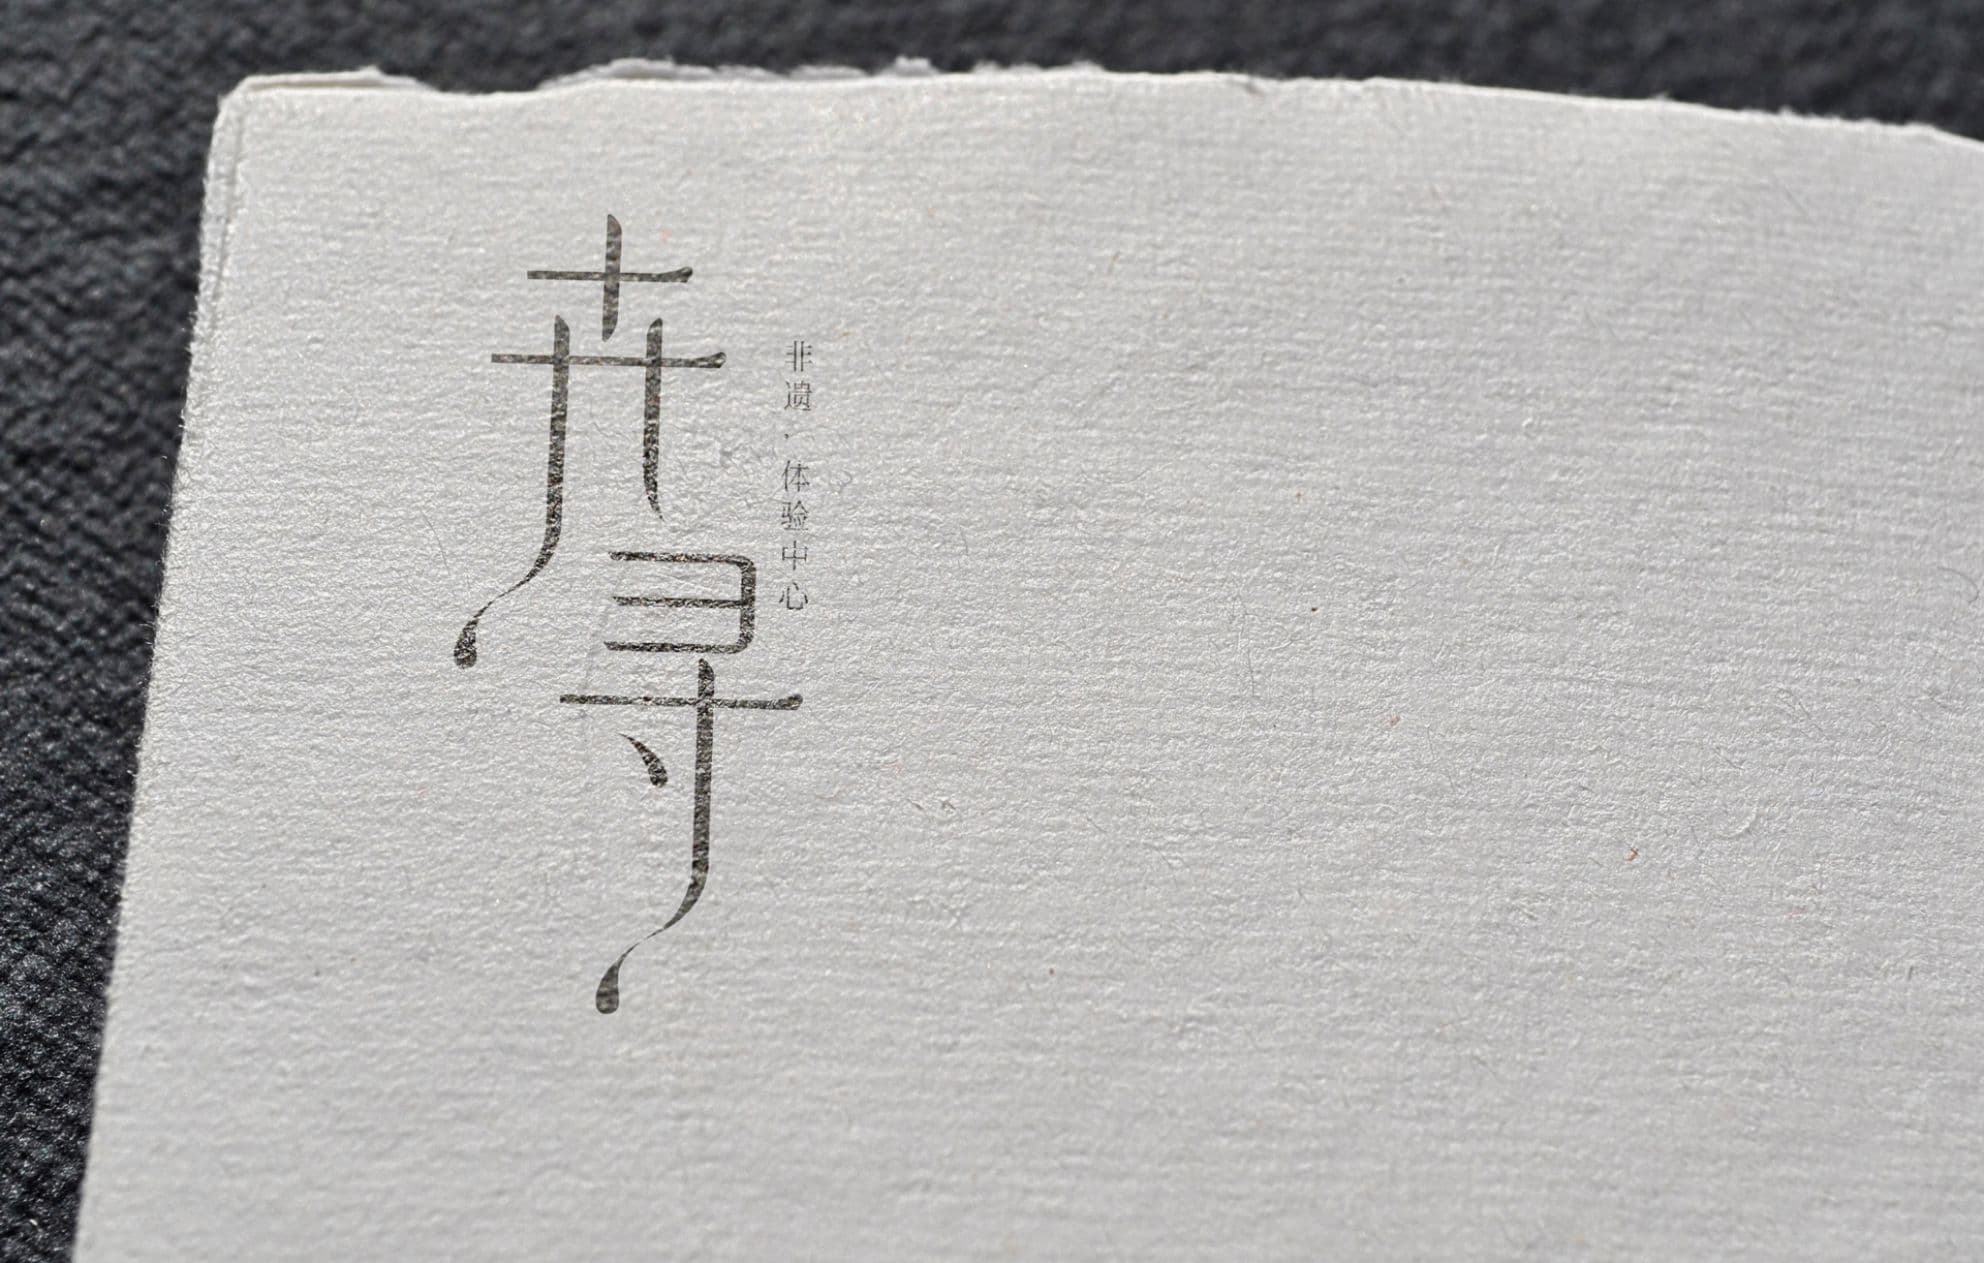 卉寻
非遗·体验中心